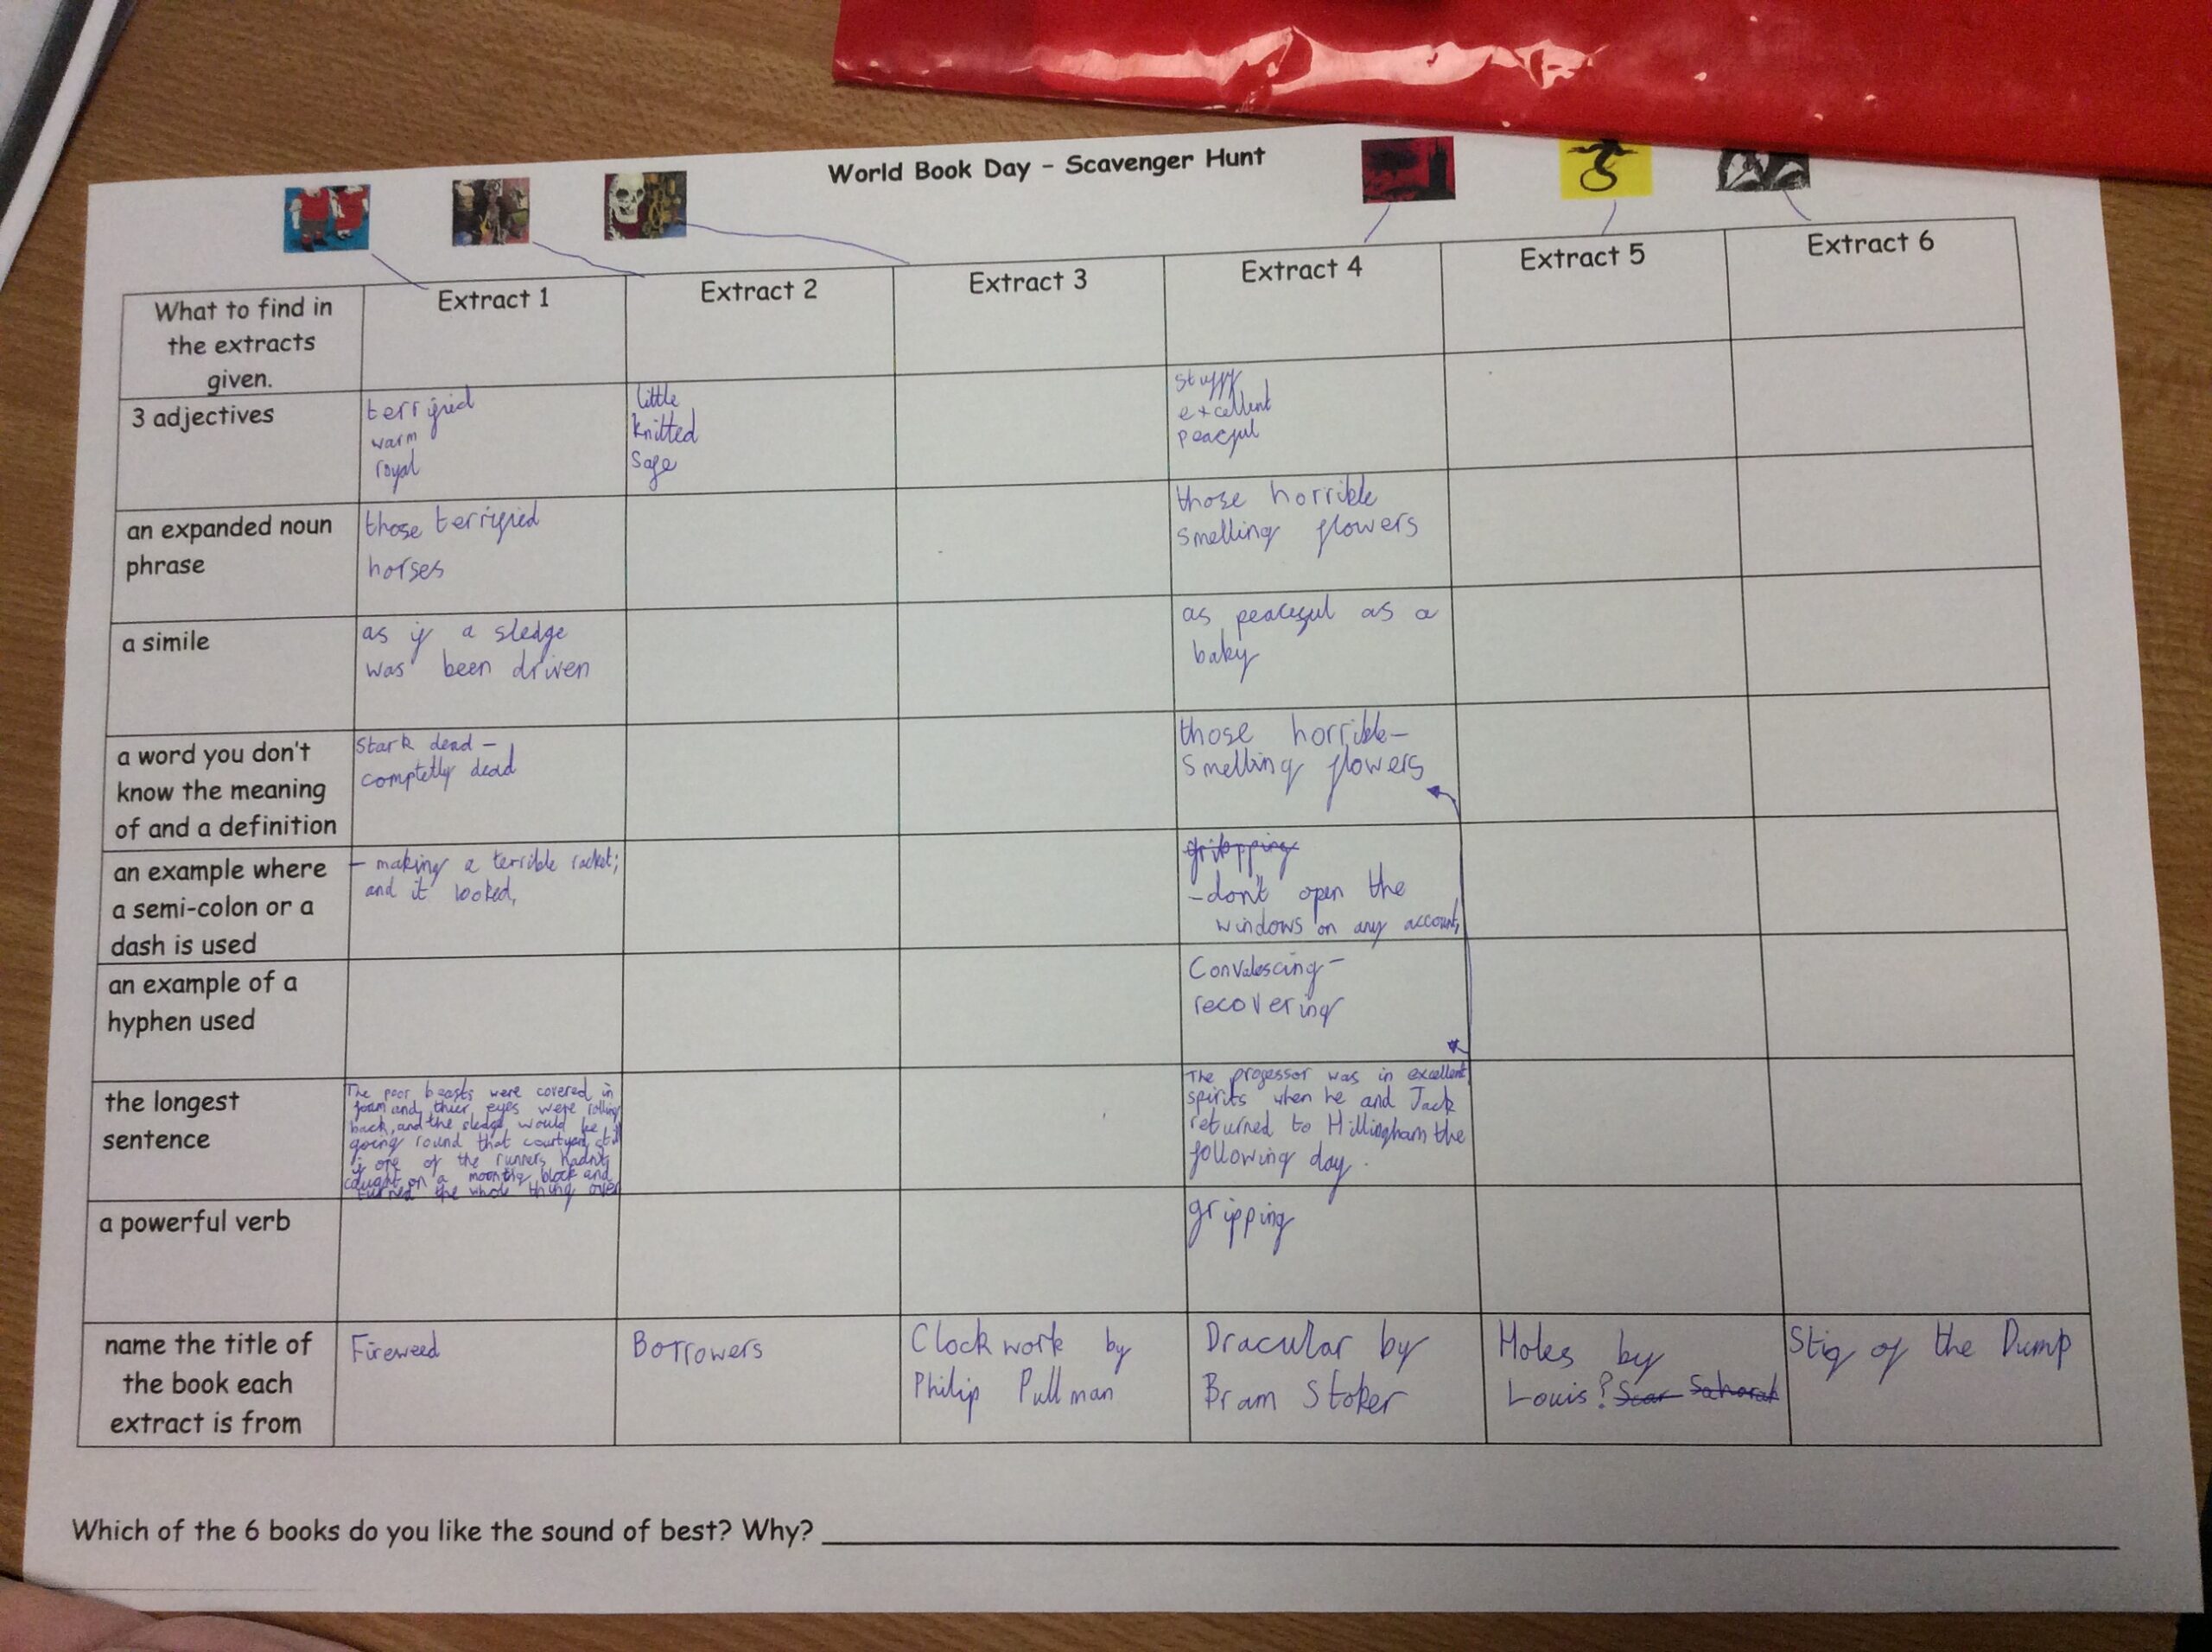 World Book Day - Scavenger Hunt
What to find in
the extracts
given.
Extract 1
Extract 2
Extract 3
Extract 4
Extract 5
Extract 6
3 adjectives
terrified
warm
royal
little
knitted
safe
stuffy
excellent
peaceful
an expanded noun
phrase
those terrified
horses
those horrible
smelling flowers
a simile
as if a sledge
was been driven
as peaceful as a
baby
a word you don't
know the meaning
of and a definition
Stark dead -
completly dead
those horrible-
smelling flowers
an example where
a semi-colon or a
dash is used
- making a terrible racket;
and it looked,
gribpping
- don't open the
windows on any account,
an example of a
hyphen used
Convalescing -
recovering
the longest
sentence
The poor beasts were covered in
foam and thier eyes were rolling
back, and the sledge would be
going round that courtyard still
if one of the runners hadn't
caught on a mounting block and
turned the whole thing over
The professor was in excellent
spirits when he and Jack
returned to Hillingham the
following day.
a powerful verb
gripping
name the title of
the book each
extract is from
Fireweed
Borrowers
Clockwork by
Philip Pullman
Dracular by
Bram Stoker
Holes by
Louis? Scar Saharah
Stig of the Dump
Which of the 6 books do you like the sound of best? Why?